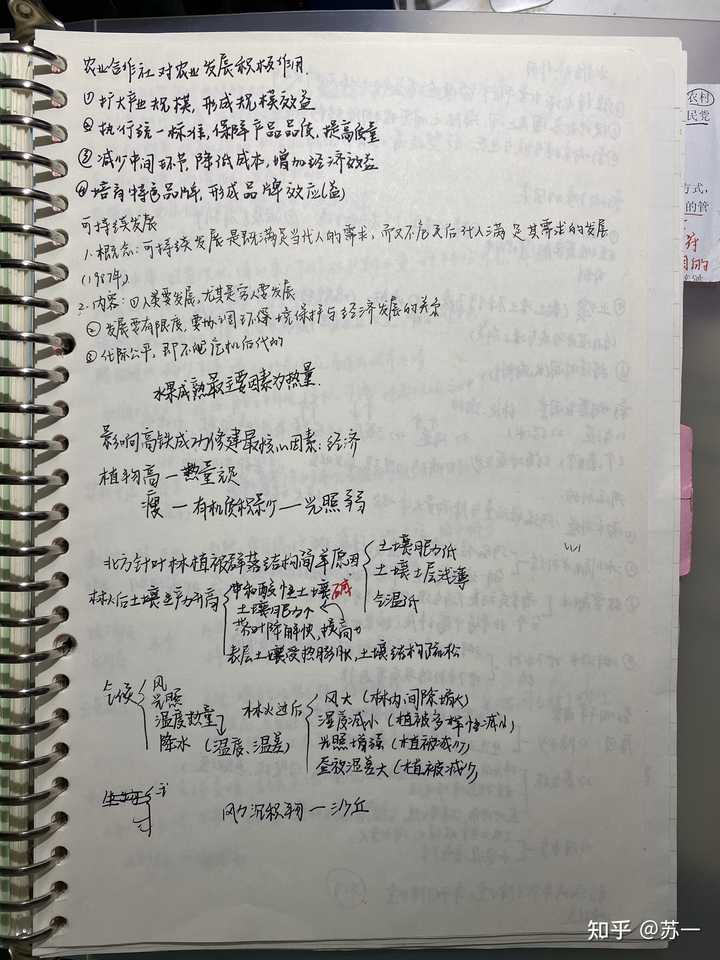 农业合作社对农业发展积极作用.
①扩大产业规模,形成规模效益
②执行统一标准,保障产品品质,提高质量
③减少中间环节,降低成本,增加经济效益
④培育特色品牌,形成品牌效应(益)
可持续发展
1.概念:可持续发展是既满足当代人的需求,而又不危害后代人满足其需求的发展
(1987年)
2.内容:①人类要发展,尤其是穷人要发展
②发展要有限度,要协调环境保护与经济发展的关系
③代际公平,即不能危机后代的
水果成熟最主要因素为热量.
影响高铁成功修建最核心因素:经济
植物高—热量充足
瘦—有机质积累少—光照弱
北方针叶林植被群落结构简单原因
土壤肥力低
土壤土层浅薄
气温低
林火后土壤生产力高
中和酸性土壤 碱
土壤肥力个
落叶降解快,提高力
表层土壤受热膨胀,土壤结构疏松
气候
风
光照
湿度热量
降水(温度、温差)
林火过后
风大(林内间隙增大)
湿度减小(植被多样性减小)
光照增强(植被减少)
昼夜温差大(植被减少)
风力沉积物—沙丘
农村
民党
方式,
的管
知乎 @苏一